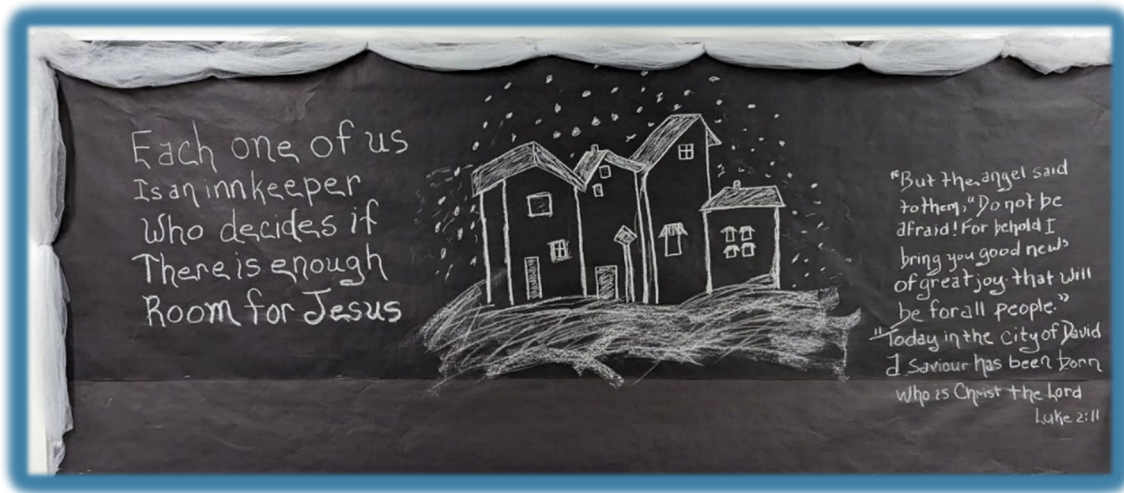 Each one of us
Is an innkeeper
Who decides if
There is enough
Room for Jesus
"But the angel said
to them, "Do not be
afraid! For behold I
bring you good news
of great joy that will
be for all people."
"Today in the city of David
a Saviour has been born
who is Christ the Lord
Luke 2:11